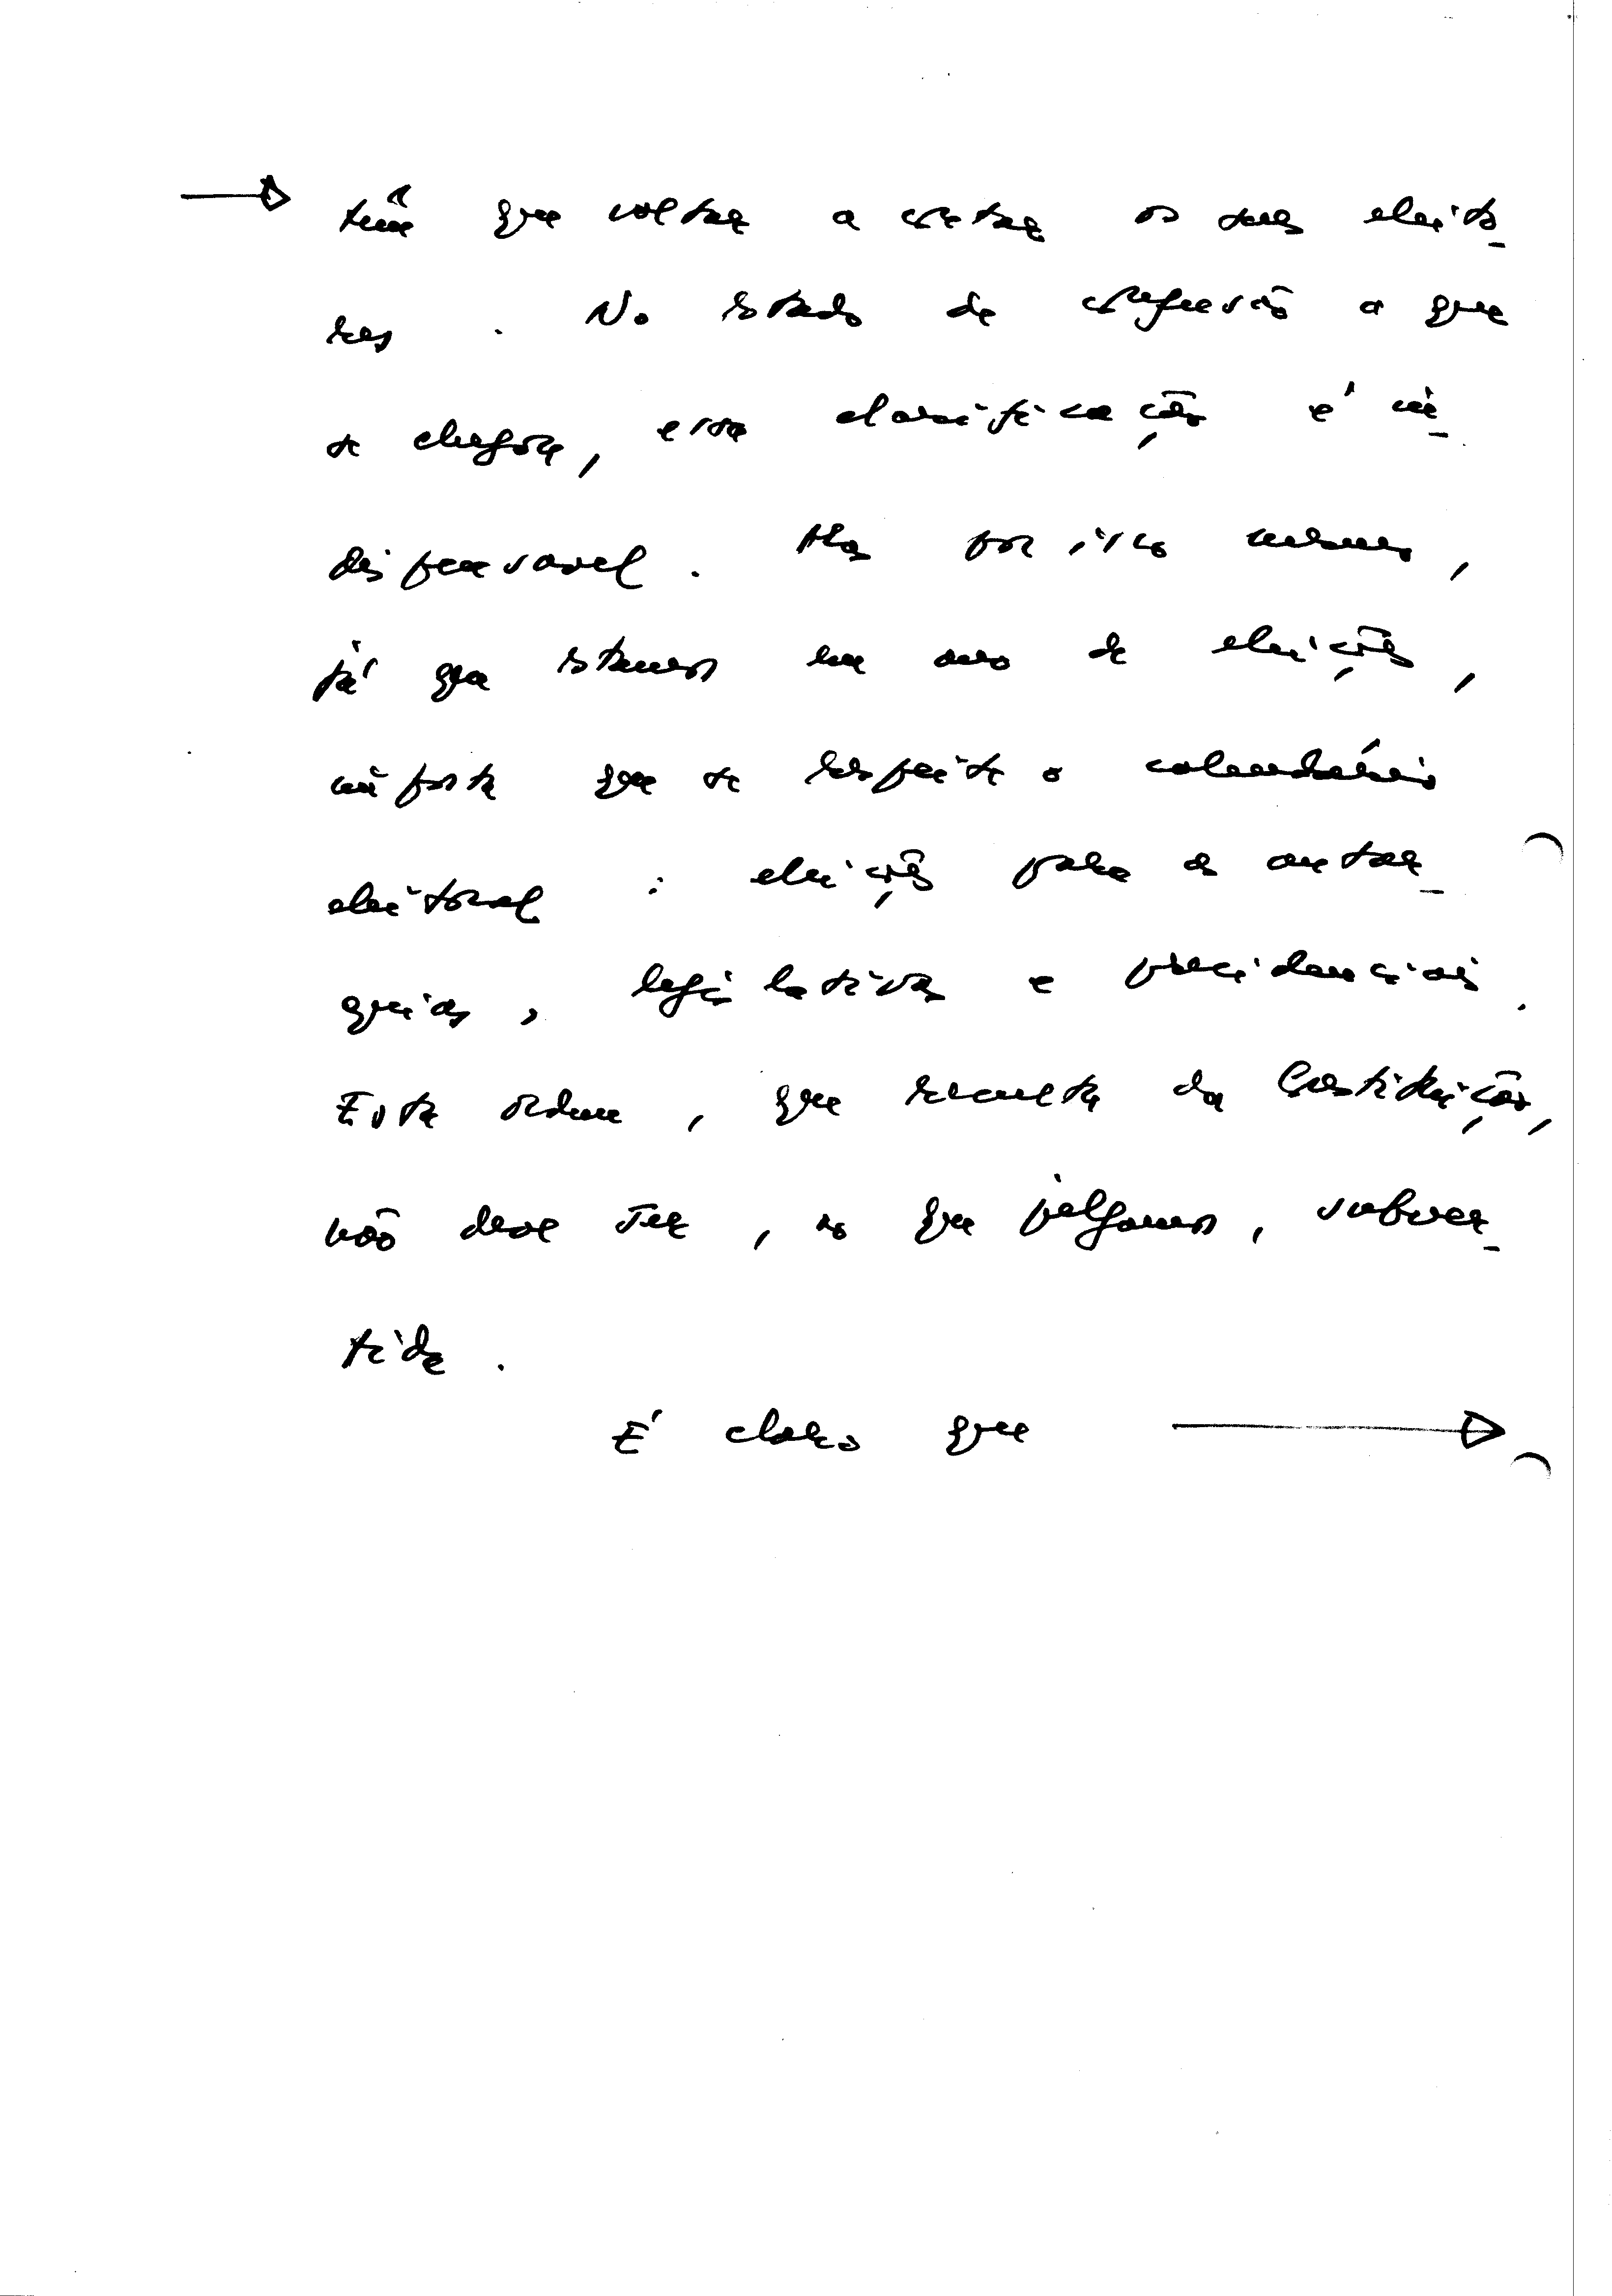 → têm que voltar a contar os seus eleito-
res. No estado de confusão a que
se chegou, essa clarificação é in-
dispensavel. Mas por isso mesmo,
já que estamos em ano de eleições,
importa que se respeite o calendário
eleitoral: eleições para as autar-
quias, legislativas e presidenciais.
Esta ordem, que resulta da Constituição,
não deve ser, ao que julgamos, subver-
tida.
É claro que →